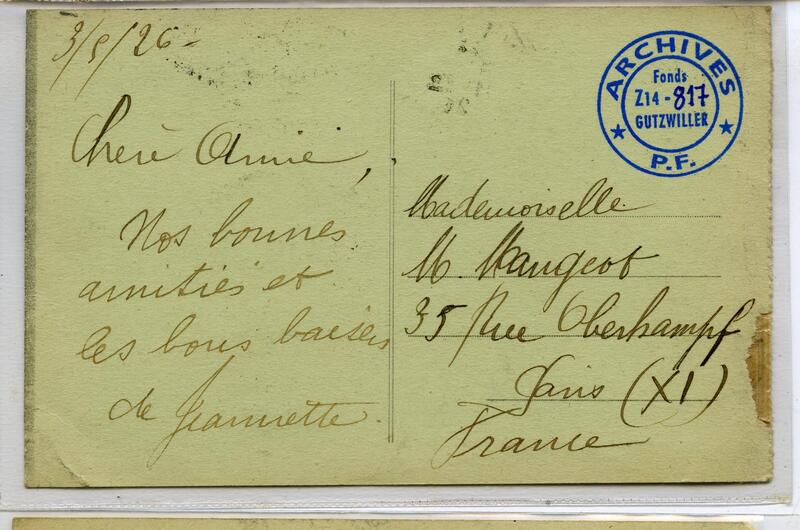 3/5/26-
Chère Amie,
Nos bonnes
amitiés et
les bons baisers
de Jeannette.
ARCHIVES
Fonds
Z14-817
GUTZWILLER
P.F.
Mademoiselle
M. Maugeot
35 Rue Oberkampf
Paris (XI)
France